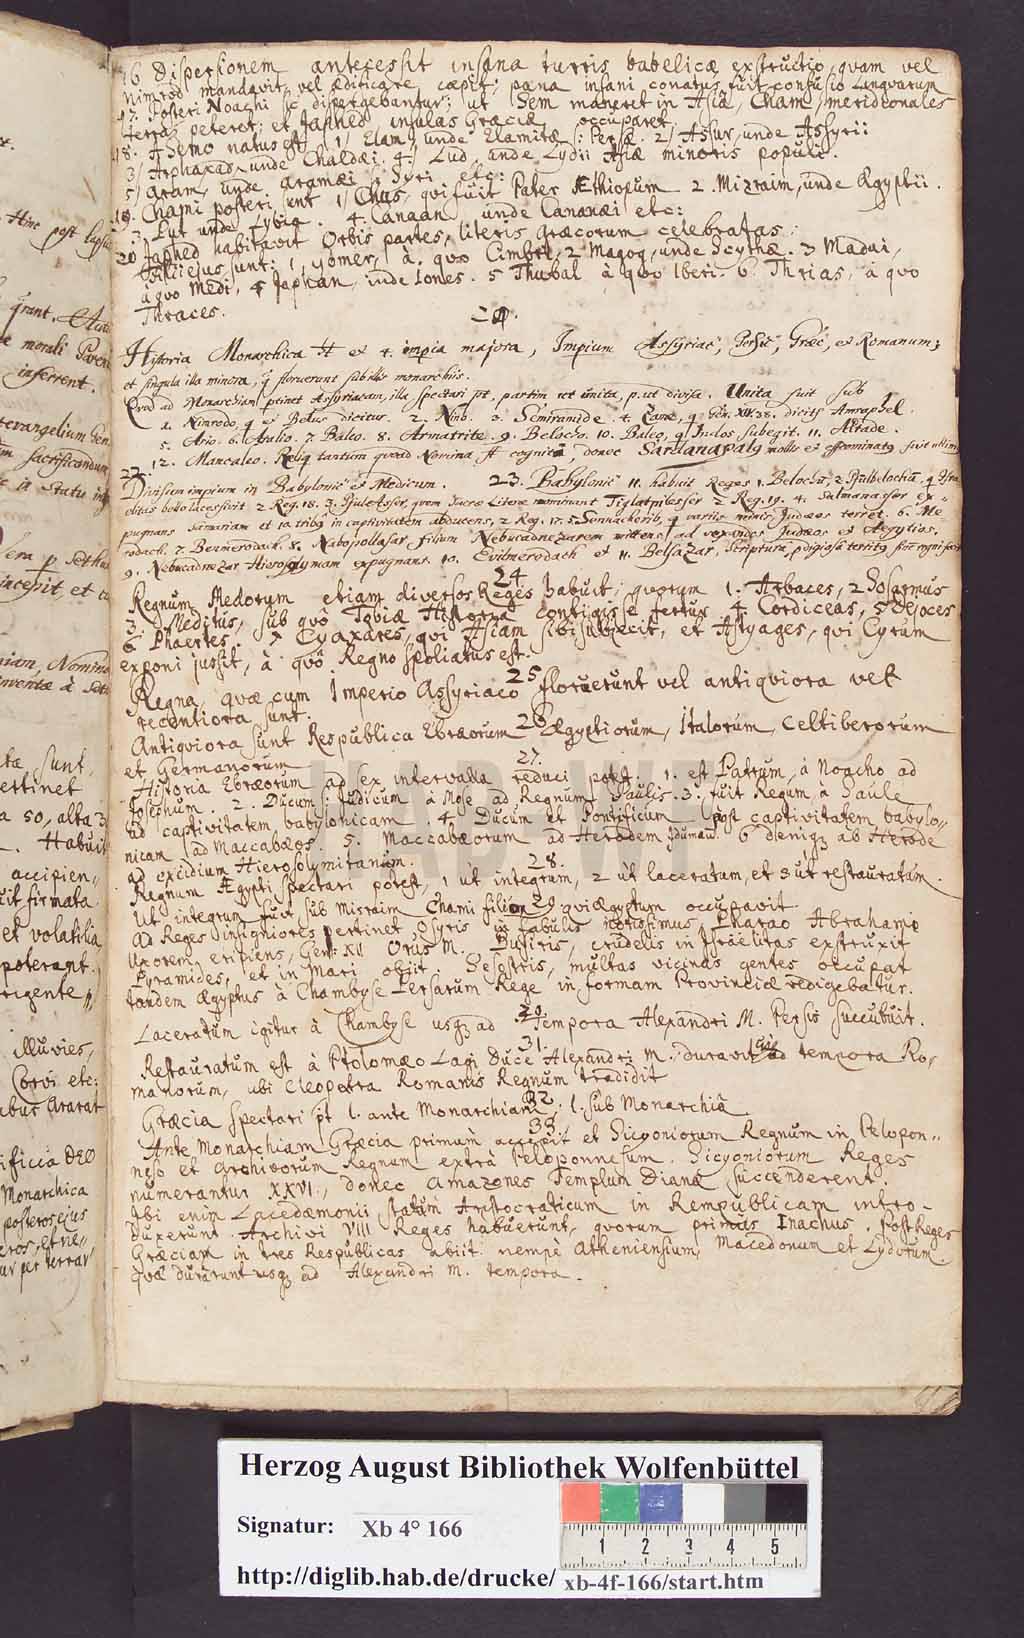 16 dispersionem antecessit insana turris babelicæ exstructio, quam vel
Nimrod mandavit vel ædificare cæpit; pœna insani conatus fuit confusio Linquarum
17. Posteri Noachi sic dispergebantur; ut Sem maneret in Asiâ, Cham meridionales
terras peteret; et Japhed insulas Græciæ occuparet.
18. A Semo natus est 1) Elam, unde Elamitæ /: Persæ. 2) Assur, unde Assyrii
3) Arphaxad, unde Chaldæi. 4) Lud, unde Lydii Asiæ minoris populi.
5) Aram, unde Aramæi Syri etc:
19. Chami posteri sunt 1) Chus, qvi fuit Pater Æthiopum 2. Mizraim, unde Ægyptii.
3. Put unde Lybia. 4. Canaan unde Cananæi etc:
20 Japhed habitavit Orbis partes, literis Græcorum celebratas.
Filii ejus sunt: 1, Gomer, à quo Cimbri, 2 Magog, unde Scythæ. 3 Madai,
à quo Medi, 4 Japhan, unde Iones. 5 Thubal à quo Iberi. 6 Thrias, à quo
Thraces.
21.
Historia Monarchica et 4. impia majora, Impium Assyriac, Persic, Græc, et Romanum;
et singula illa minora, q floruerunt sub illis monarchiis.
Quod ad Monarchiam ptinet Assyriacam, illa spectari pt. partim ut unita, p. ut divisa. Unita fuit sub
1. Nimrodo, q et Belus dicitur. 2. Nino. 3. Semiramide. 4. Zame, q Gen. XIV. 38. dicitr Amraphel.
5. Ario. 6. Aralio. 7. Baleo. 8. Armatrite. 9. Belocho. 10. Baleo, q Indos subegit. 11. Altade.
22. 12. Mancaleo. Reliq tantum quoad Nomina st cogniti, donec Sardanapalq mollis et effœminatq fuit ultim
Divisum impium in Babylonic et Medicum. 23. Babylonic 11. habuit Reges 1. Belochu, 2. Phulbelochu, q Isra
elitas bello lacessivit 2 Reg. 18. 3. Phulasser, quem Sacræ Literæ nominant Tiglatpilesser 2 Reg. 19. 4. Salmanassar ex-
pugnans Samariam et 10. tribq in captivitatem abducens, 2 Reg. 17. 5. Sennacherib, q variis minis Judæos terret. 6. Me-
rodach. 7. Benmerodach. 8. Nabopollasar, filium Nebucadnezarem mittens ad vexandos Judæos et Aegyptios.
9. Nebucadnezar Hierosolymam expugnans. 10. Evilmerodach et 11. Belsazar, Scriptura,
24.
Regnum Medorum etiam diversos Reges habuit; quorum 1. Arbaces, 2 Sosarmus
3. Meditus, sub quô Tobiæ Historia contigisse fertur 4. Cordiceas, 5 Dejoces
6 Phaertes. 7 Cyaxares, qui Asiam sibi subjecit, et Astyages, qui Cyrum
exponi jussit, à quô Regno spoliatus est.
25
Regna, quæ cum Imperio Assyriaco floruerunt vel antiqviora vel
recentiora sunt.
26
Antiqviora sunt Respublica Ebræorum Ægyptiorum, Italorum, Celtiberorum
et Germanorum
27.
Historia Ebræorum ad sex intervalla reduci potest. 1. est Patrum, à Noacho ad
Josephum. 2. Ducum /: Judicum à Mose ad Regnum Saulis. 3. fuit Regum, à Saule
ad captivitatem babylonicam 4. Ducum et Pontificum post captivitatem babylo-
nicam ad Maccabæos. 5. Maccabæorum ad Herodem Idumæu. 6 deniq ab Herode
ad excidium Hierosolymitanum.
28.
Regnum Ægypti spectari potest, 1 ut integrum, 2 ut laceratum, et 3 ut restauratum.
29
Ut integrum fuit sub Misraim Chami filio qvi Ægyptum occupavit.
Ad Reges insigniores pertinet Osyris in fabulis notissimus, Pharao Abrahamo
uxorem eripiens, Gen: XII Orus M. Busiris, crudelis in Israelitas exstruxit
Pyramides, et in Mari obiit. Sesostris, multas vicinas gentes occupat
tandem Ægyptus à Chambyse Persarum Rege in formam Provinciæ redigebatur.
30.
Laceratum igitur à Chambyse usq ad Tempora Alexandri M. Persis succubuit.
31.
Restauratum est à Ptolomæo Lagi Duce Alexandri M. duravit ad tempora Ro-
manorum, ubi Cleopatra Romanis Regnum tradidit
32.
Græcia spectari pt 1. ante Monarchiam, 1. sub Monarchiâ
33.
Ante Monarchiam Græcia primum accepit et Sicyoniorum Regnum in Pelopon-
neso et Archivorum Regnum extrà Peloponnesum. Sicyoniorum Reges
numerantur XXVI, donec Amazones Templum Dianæ succenderent.
Ibi enim Lacedæmonii statum Aristocraticum in Rempublicam intro-
duxerunt. Archivi VIII Reges habuerunt, quorum primus Inachus. Post Reges
Græciam in tres Respublicas abiit. nempè Atheniensium, Macedonum et Lydorum
quæ durârunt usq ad Alexandri M. tempora.
Hinc post lapsu
morali
inferrent.
sacrificandum
in statu
inceperit, et
Nomina
sunt,
pertinet
a 50, alta 3
Habuit
accipien,,
firmata
et volatilia
poterant.
illuvies,
Corvi etc:
Ararat
DEO
Monarchica
posteros ejus
per terrar
HAB WF
Herzog August Bibliothek Wolfenbüttel
Signatur: Xb 4° 166
1 2 3 4 5
http://diglib.hab.de/drucke/ xb-4f-166/start.htm